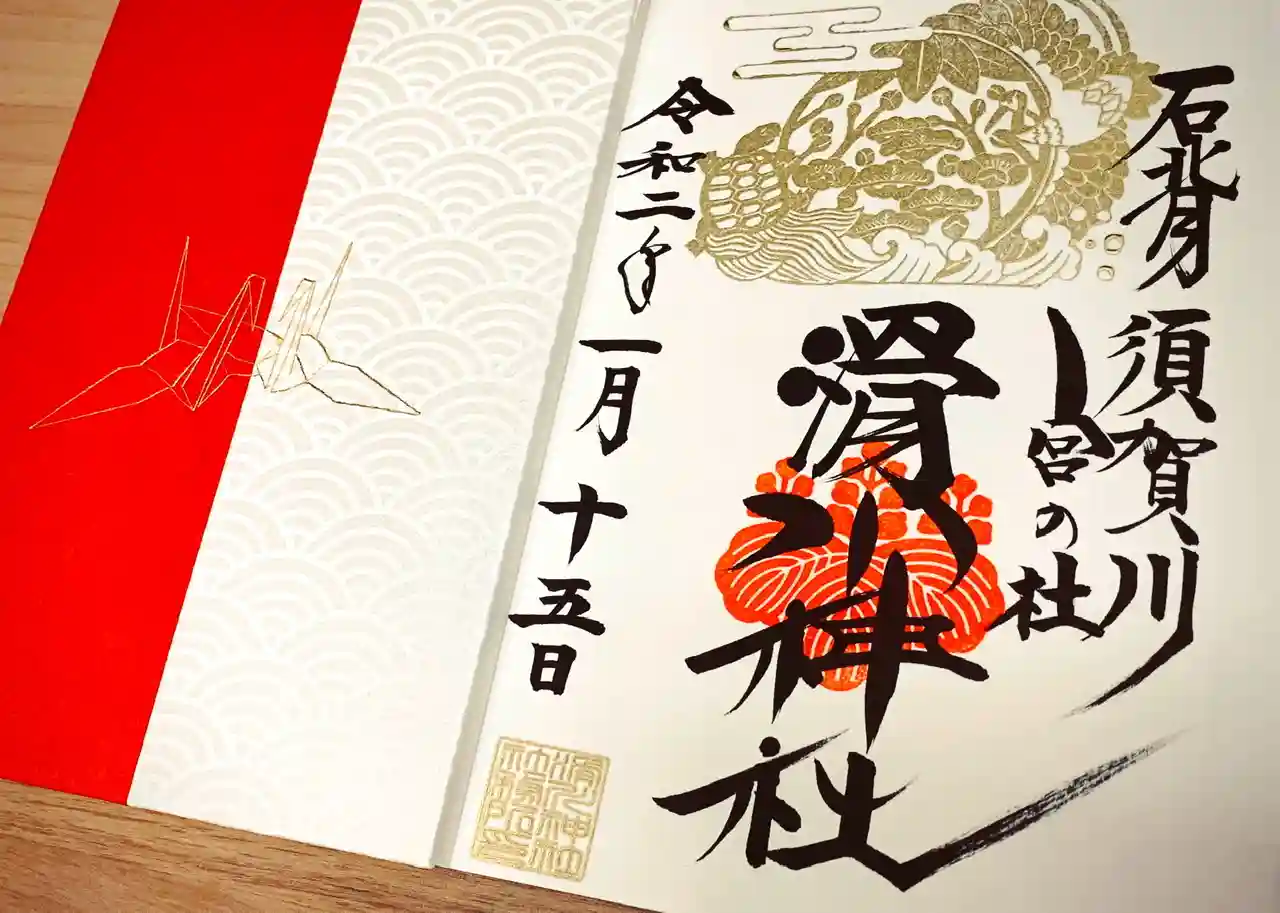 石背 須賀川
宮の杜
滑川神社
令和二年一月十五日